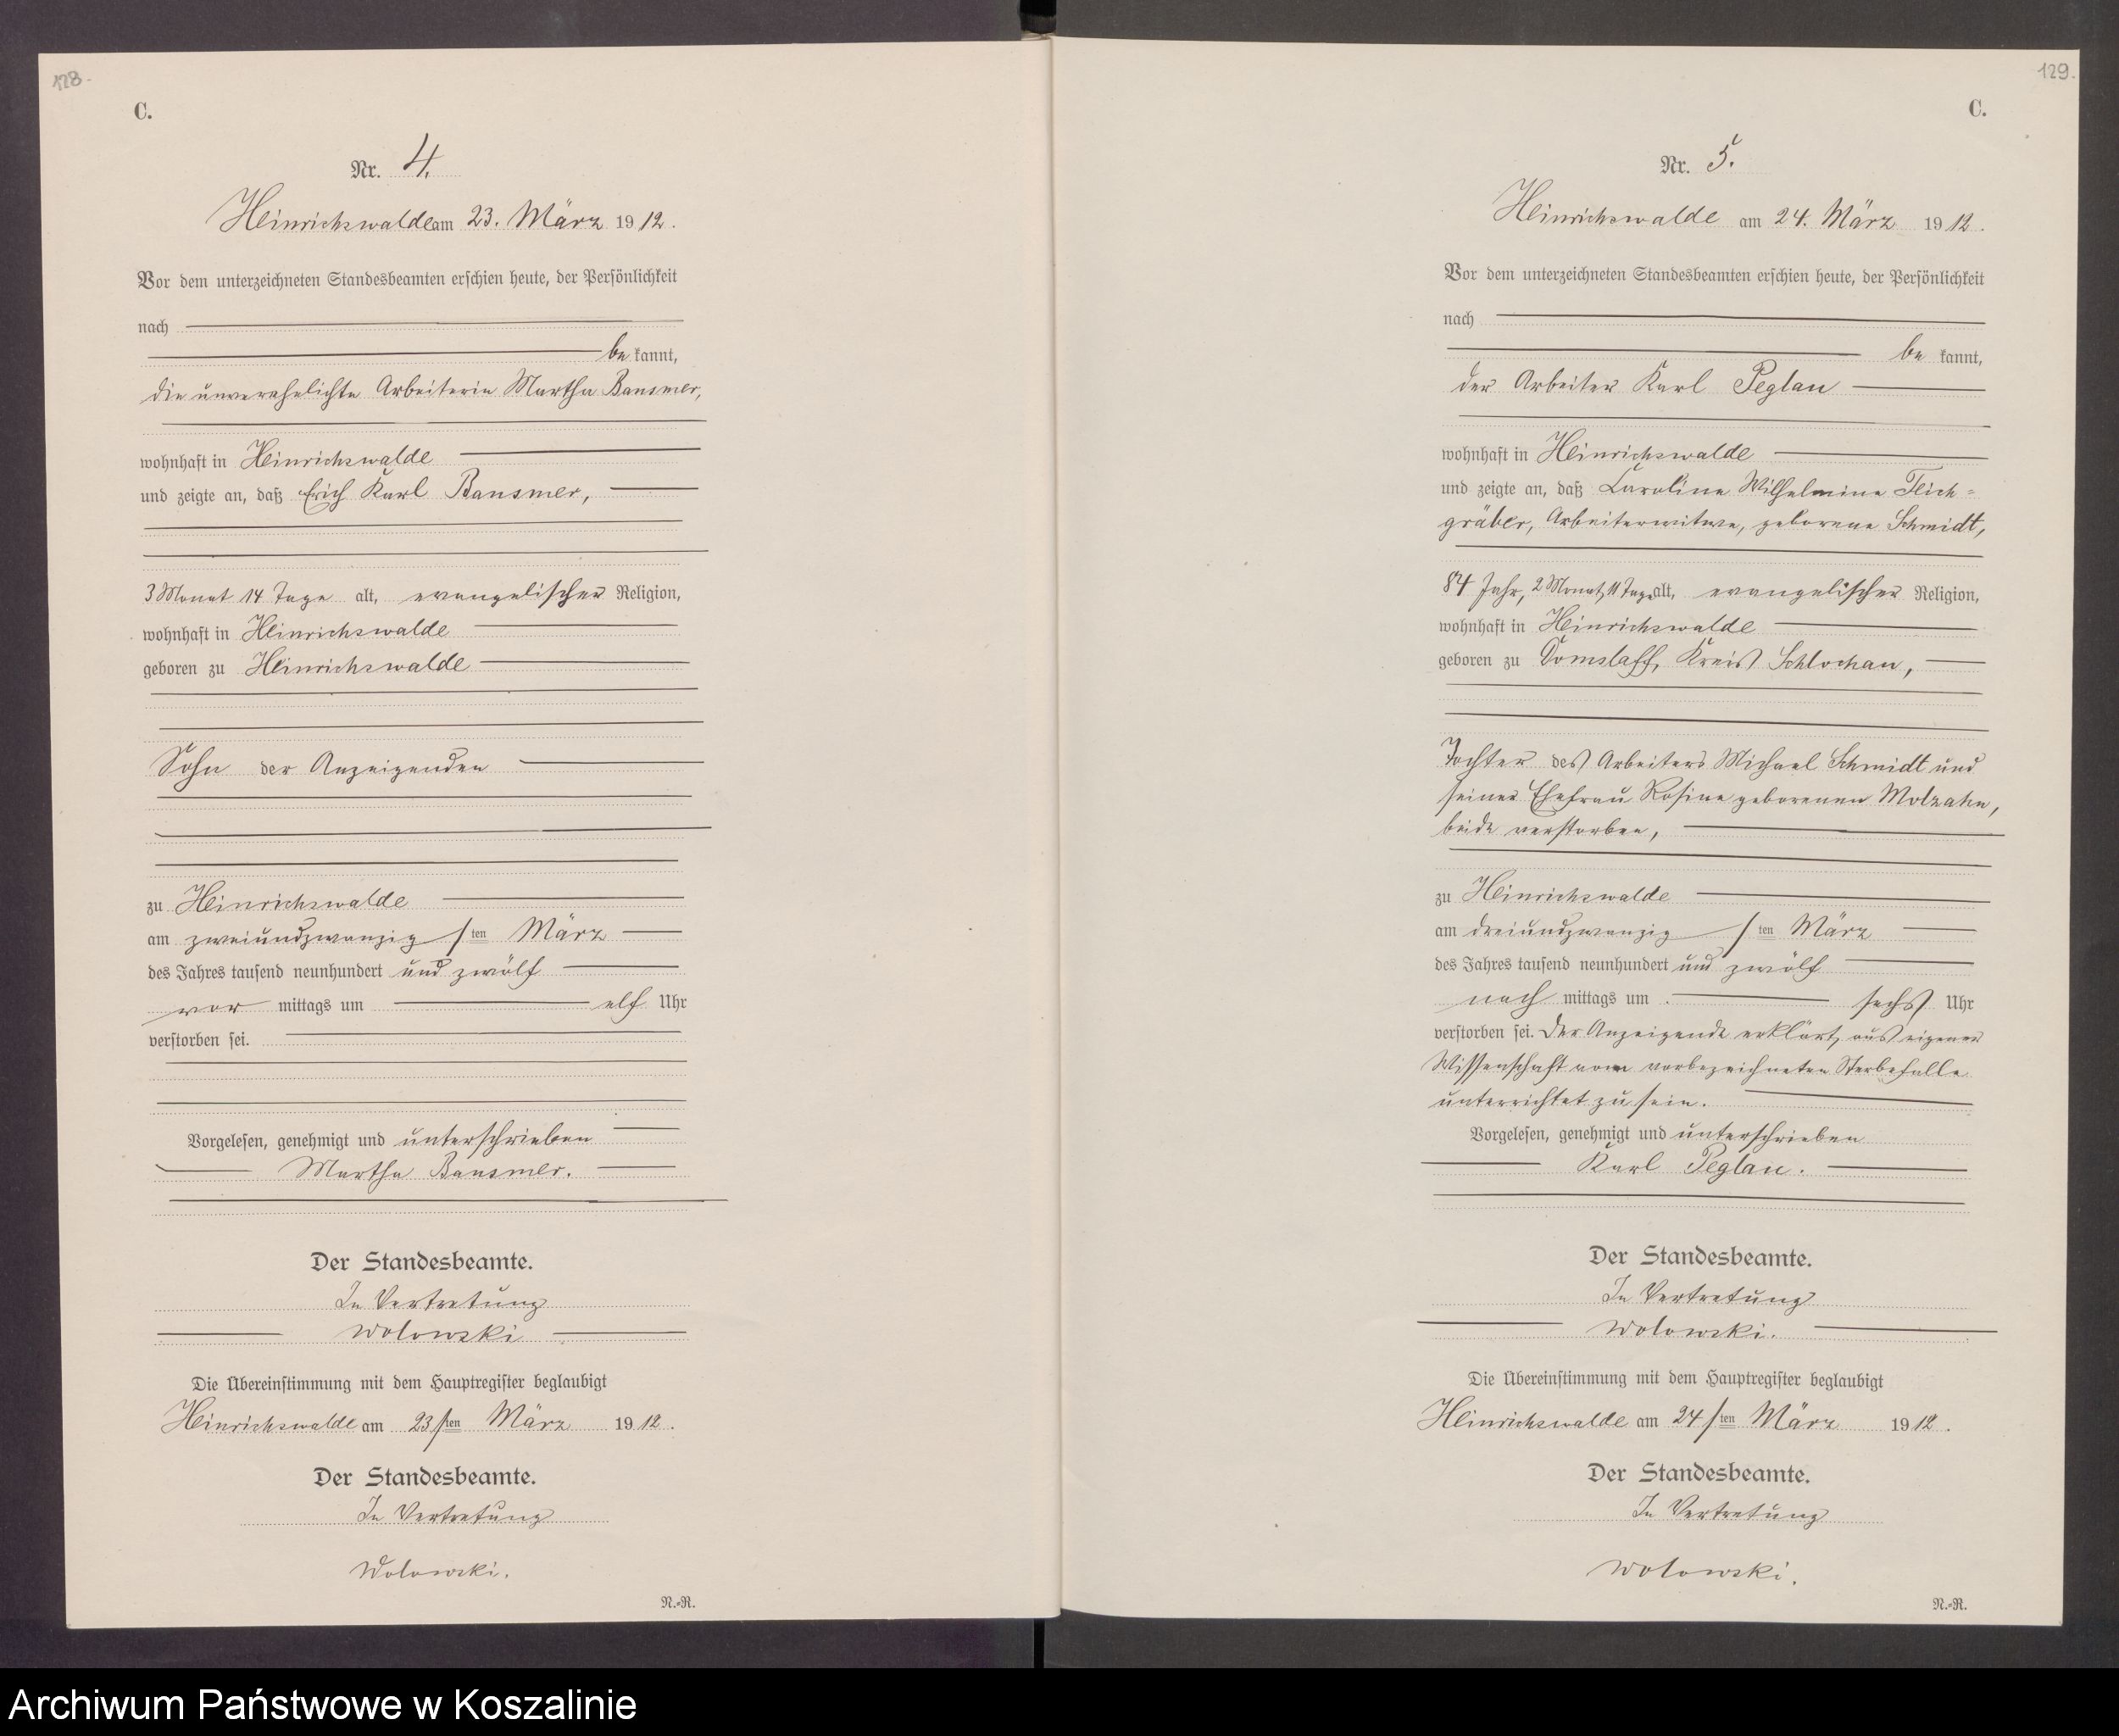 128.
C.
Nr. 4.
Heinrichswalde am 23. März 1912.
Vor dem unterzeichneten Standesbeamten erschien heute, der Persönlichkeit
nach
be kannt,
die unverehelichte Arbeiterin Martha Bansmer,
wohnhaft in Heinrichswalde
und zeigte an, daß Erich Karl Bansmer,
3 Monat 14 Tage alt, evangelischer Religion,
wohnhaft in Heinrichswalde
geboren zu Heinrichswalde
Sohn der Anzeigenden
zu Heinrichswalde
am zweiundzwanzigsten März
des Jahres tausend neunhundert und zwölf
vor mittags um elf Uhr
verstorben sei.
Vorgelesen, genehmigt und unterschrieben
Martha Bansmer.
Der Standesbeamte.
In Vertretung
Wolowski
Die Übereinstimmung mit dem Hauptregister beglaubigt
Heinrichswalde am 23sten März 1912.
Der Standesbeamte.
In Vertretung
Wolowski.
N.-R.
129.
C.
Nr. 5.
Heinrichswalde am 24. März 1912.
Vor dem unterzeichneten Standesbeamten erschien heute, der Persönlichkeit
nach
be kannt,
der Arbeiter Karl Peglau
wohnhaft in Heinrichswalde
und zeigte an, daß Karoline Wilhelmine Teich=
gräber, Arbeiterwitwe, geborene Schmidt,
84 Jahr, 2 Monat, 11 Tage alt, evangelischer Religion,
wohnhaft in Heinrichswalde
geboren zu Domslaff, Kreis Schlochau,
Tochter des Arbeiters Michael Schmidt und
seiner Ehefrau Rosine geborenen Molzahn,
beide verstorben,
zu Heinrichswalde
am dreiundzwanzigsten März
des Jahres tausend neunhundert und zwölf
nach mittags um sechs Uhr
verstorben sei. Der Anzeigende erklärt, aus eigener
Wissenschaft vom vorbezeichneten Sterbefalle
unterrichtet zu sein.
Vorgelesen, genehmigt und unterschrieben
Karl Peglau.
Der Standesbeamte.
In Vertretung
Wolowski.
Die Übereinstimmung mit dem Hauptregister beglaubigt
Heinrichswalde am 24sten März 1912.
Der Standesbeamte.
In Vertretung
Wolowski.
N.-R.
Archiwum Państwowe w Koszalinie